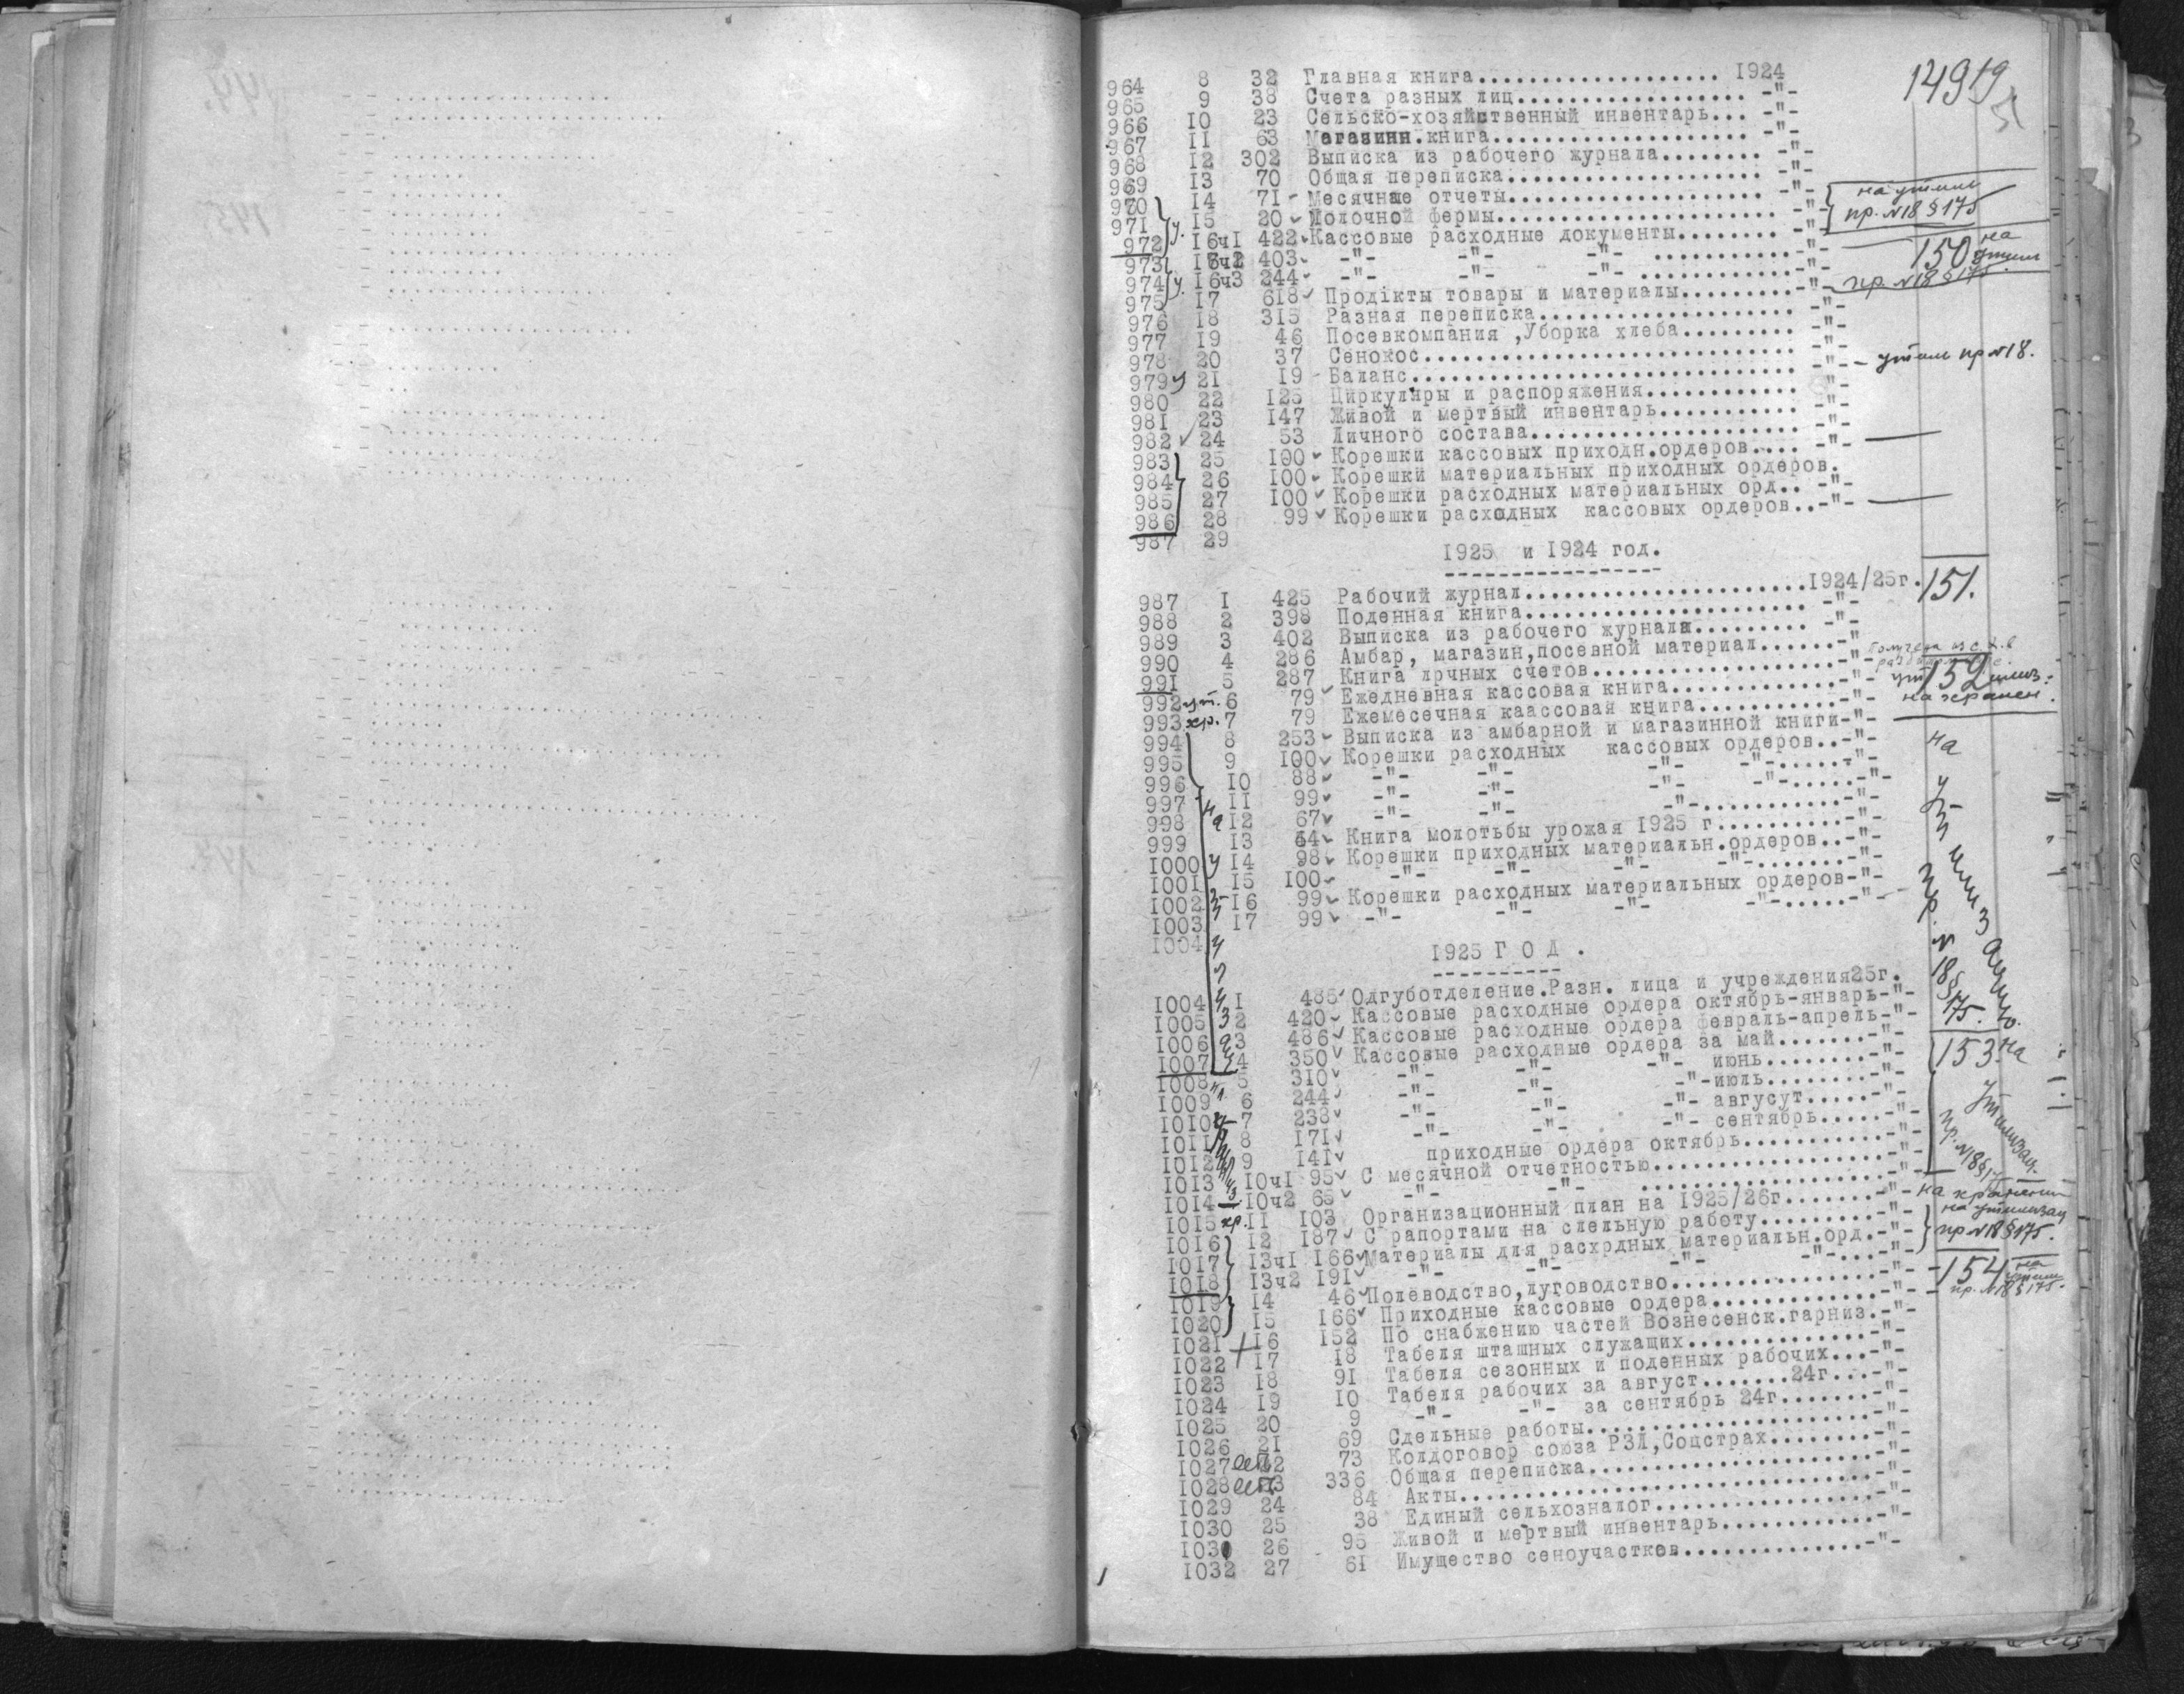 964 8 32 Главная книга................... 1924
14919
965 9 38 Счета разных лиц.................. -"-
51
966 10 23 Сельско-хозяйственный инвентарь... -"-
967 11 63 Магазинн.книга.................... -"-
968 12 302 Выписка из рабочего журнала........ -"-
969 13 70 Общая переписка.................... -"-
970 14 71 Месячные отчеты.................... -"-
на утиль
971 у. 15 20 Молочной фермы...................... -"-
пр. №18 §175
972 16ч1 422 Кассовые расходные документы........ -"-
150 на утиль
973 16ч2 403 -"- -"- -"- ........... -"-
974 у. 16ч3 244 -"- -"- -"- ........... -"-
пр. №18 §175.
975 17 618 Продікты товары и материалы......... -"-
976 18 315 Разная переписка.................... -"-
977 19 46 Посевкомпания ,Уборка хлеба......... -"-
978 20 37 Сенокос............................. -"-
979 у 21 19 Баланс.............................. -"- - утиль пр №18.
980 22 125 Циркуляры и распоряжения............ -"-
981 23 147 Живой и мертвый инвентарь........... -"-
982 24 53 Личного состава..................... -"-
983 25 100 Корешки кассовых приходн.ордеров.... -"-
984 26 100 Корешки материальных приходных ордеров.
985 27 100 Корешки расходных материальных орд.. -"-
986 28 99 Корешки расходных кассовых ордеров..-"-
987 29
1925 и 1924 год.
987 1 425 Рабочий журнал......................1924/25г.
151.
988 2 398 Поденная книга...................... -"-
989 3 402 Выписка из рабочего журнала......... -"-
990 4 286 Амбар, магазин,посевной материал......-"-
991 5 287 Книга лрчных счетов...................-"-
152
992 ут. 6 79 Ежедневная кассовая книга.............-"-
993 хр. 7 79 Ежемесечная каассовая книга...........-"-
на хранен.
994 8 253 Выписка из амбарной и магазинной книги-"-
995 9 100 Корешки расходных кассовых ордеров..-"-
на утилизацию
996 10 88 -"- -"- -"- -"-......-"-
997 11 99 -"- -"- -"- -"-......-"-
998 12 67 -"- -"- -"-...........-"-
999 13 44 Книга молотьбы урожая 1925 г..........-"-
1000 14 98 Корешки приходных материальн.ордеров..-"-
1001 15 100 -"- -"- -"- -"-.......-"-
1002 16 99 Корешки расходных материальных ордеров-"-
1003 17 99 -"- -"- -"- -"-.....-"-
пр. № 18 § 175.
1004
1925 ГОД .
1004 1 485 Одгуботделение.Разн. лица и учреждения25г.
1005 2 420 Кассовые расходные ордера октябрь-январь-"-
1006 3 486 Кассовые расходные ордера февраль-апрель-"-
1007 4 350 Кассовые расходные ордера за май.......-"-
153. на утилизац.
1008 5 310 -"- -"- -"- июнь........-"-
1009 6 244 -"- -"- -"-июль.........-"-
1010 7 238 -"- -"- -"- авгусут.....-"-
1011 8 171 -"- -"- -"- сентябрь.....-"-
пр. №18 §175
1012 9 141 приходные ордера октябрь...........-"-
1013 10ч1 95 С месячной отчетностью..................-"-
1014 10ч2 65 -"- -"- ...................-"-
на хранении
1015 хр. 11 103 Организационный план на 1925/26г.......-"-
на утилизац
1016 12 187 С рапортами на сдельную работу.........-"-
пр №18 §175.
1017 13ч1 166 Материалы для расхрдных материальн.орд.-"-
1018 13ч2 191 -"- -"- -"- -"-...-"-
154 на утиль
1019 14 46 Полеводство,луговодство................-"-
пр. №18 §175.
1020 15 166 Приходные кассовые ордера.............-"-
1021 16 152 По снабжению частей Вознесенск.гарниз.-"-
1022 17 18 Табеля шташных служащих..............-"-
1023 18 91 Табеля сезонных и поденных рабочих...-"-
1024 19 10 Табеля рабочих за август.......24г...-"-
1025 20 9 -"- -"- за сентябрь 24г.......-"-
1026 21 69 Сдельные работы.......................-"-
1027 22 73 Колдоговор союза РЗЛ,Соцстрах.........-"-
1028 23 336 Общая переписка.......................-"-
1029 24 84 Акты..................................-"-
1030 25 38 Единый сельхозналог..................-"-
1031 26 95 Живой и мертвый инвентарь............-"-
1032 27 61 Имущество сеноучастков..............-"-